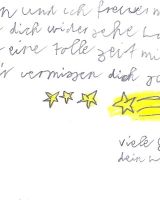 n und ich freue m
dich wider sehe w
eine tolle Zeit mi
r vermissen dich
viele
dein